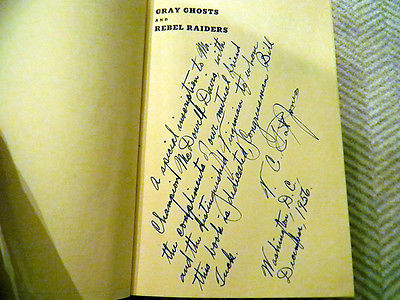 GRAY GHOSTS
AND
REBEL RAIDERS
A special inscription to Mr.
Champion McDowell Davis, with
the compliments of our mutual friend
and the distinguished Virginian to whom
this book is dedicated, Congressman Bill
Tuck.
V. C. Jones
Washington, D.C.
December, 1956.